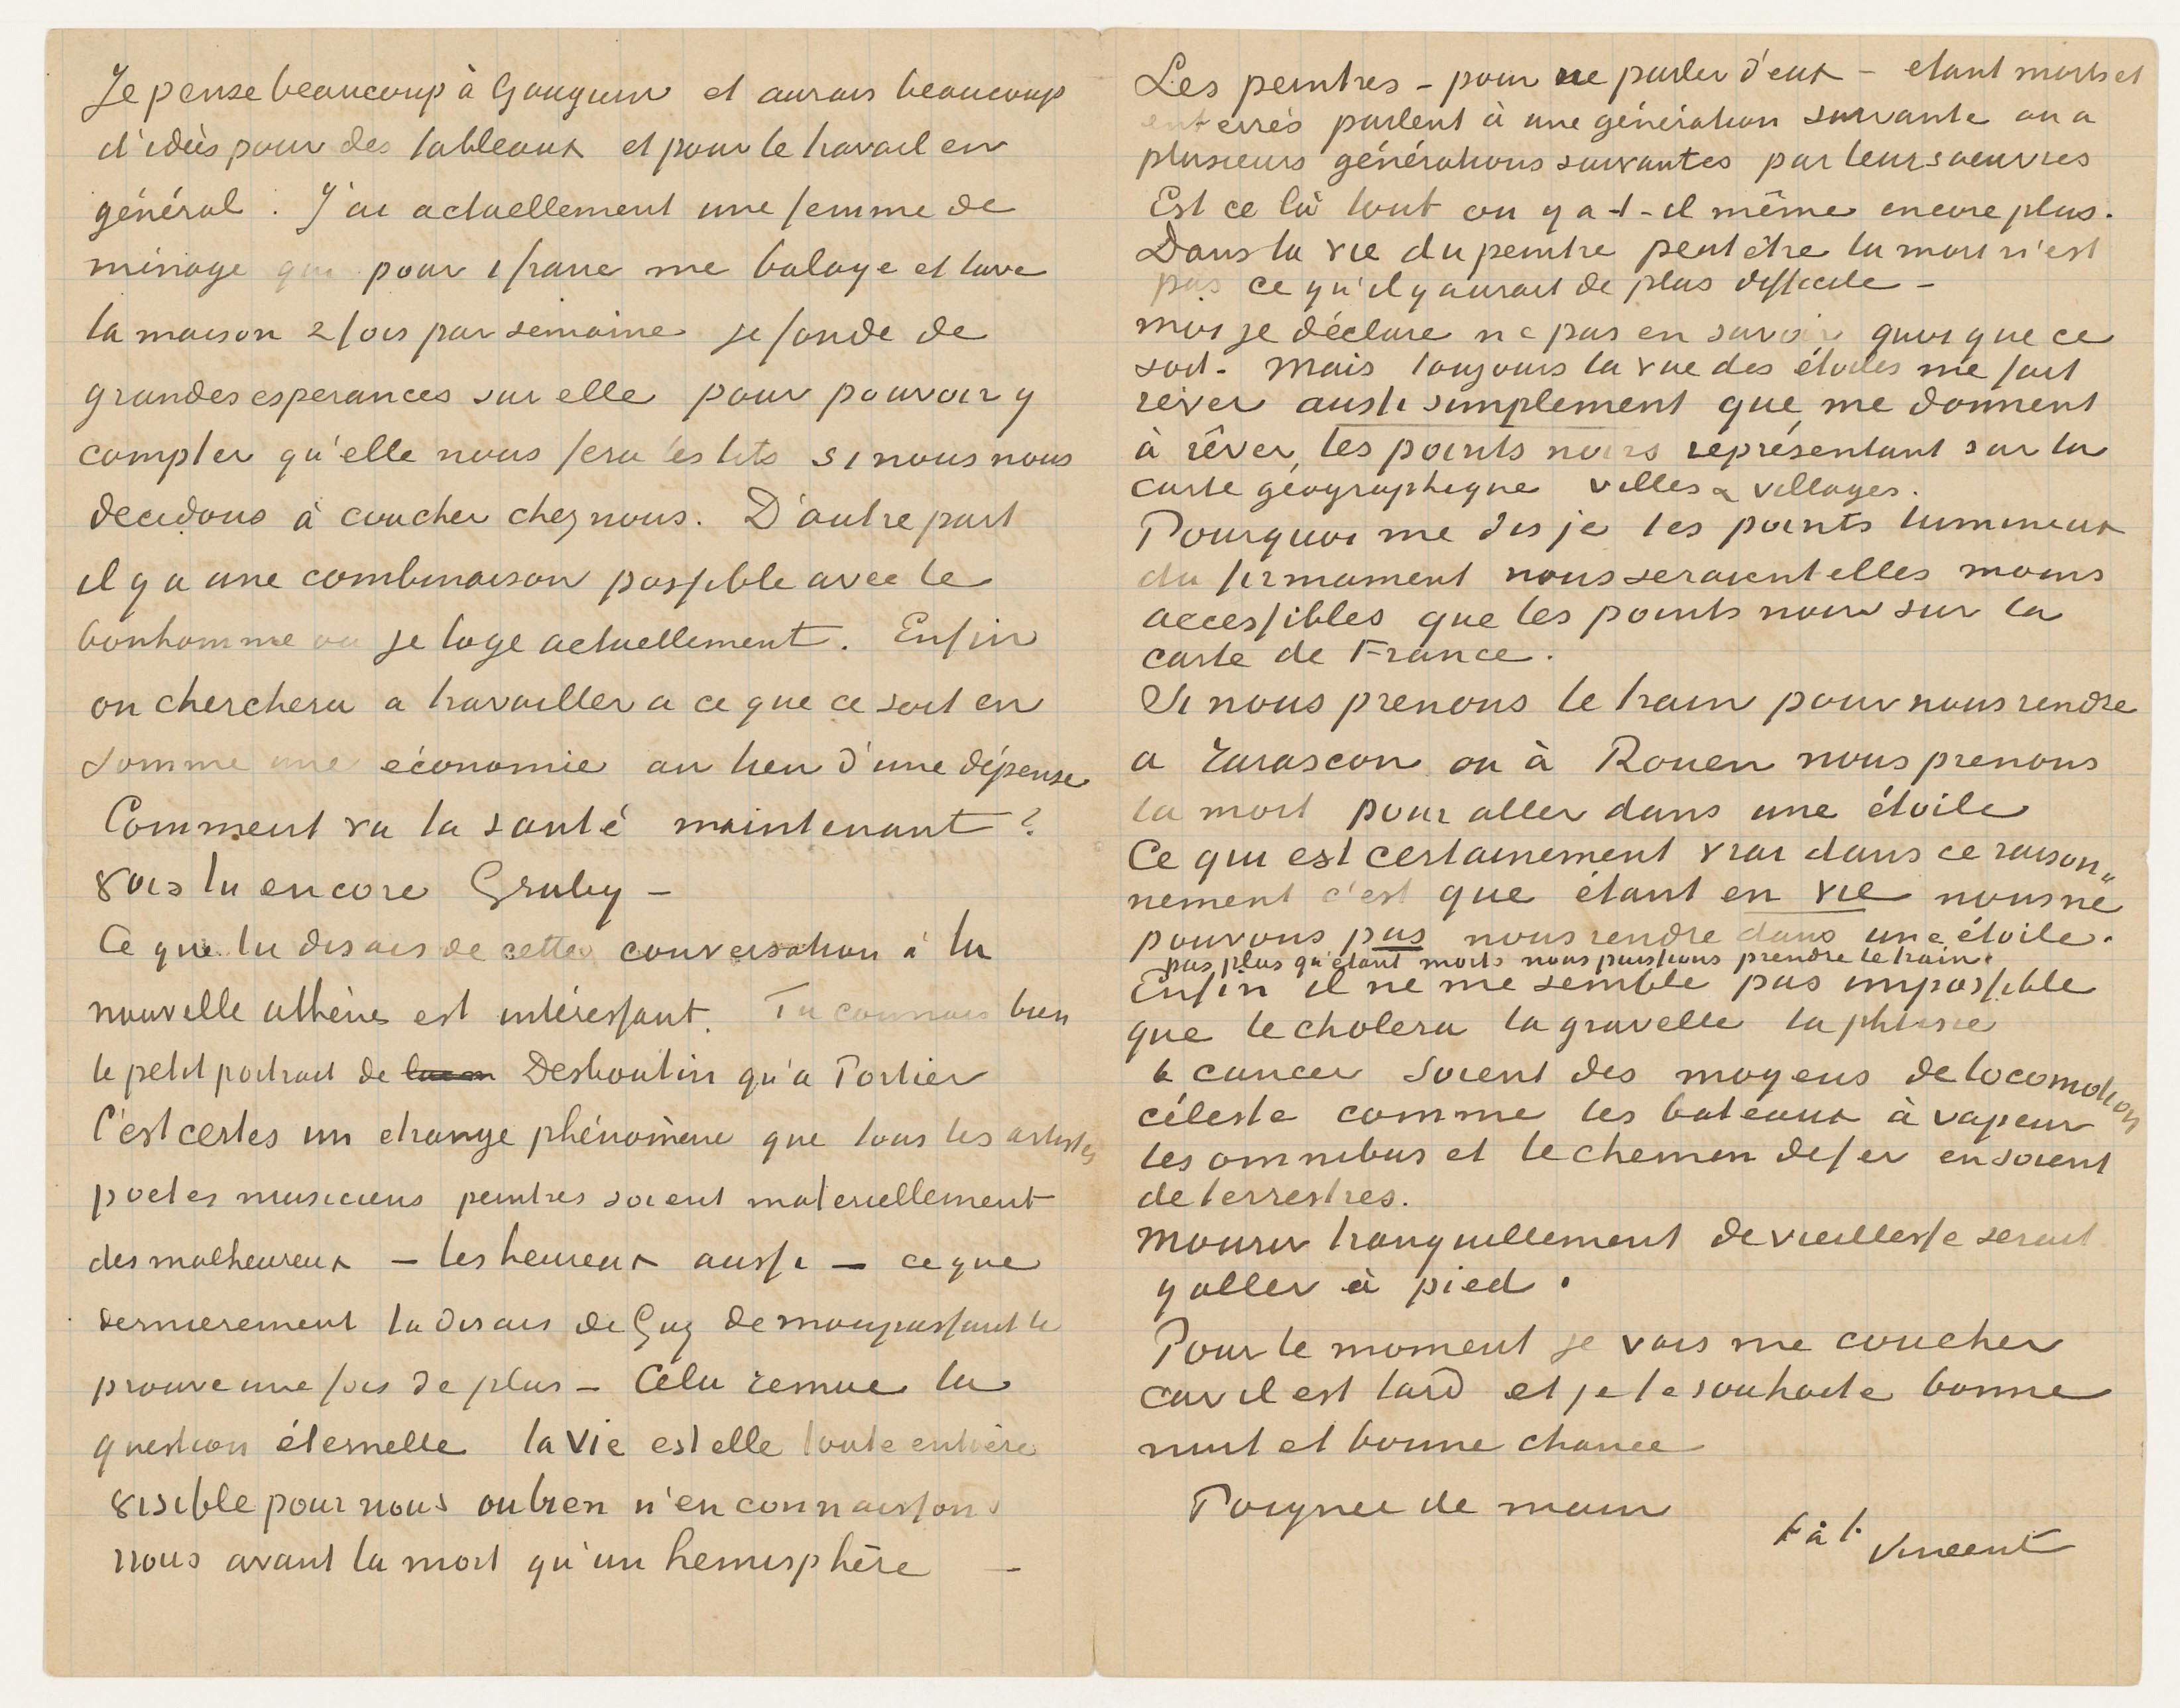 Je pense beaucoup à Gauguin et aurais beaucoup
d'idées pour des tableaux et pour le travail en
général. J'ai actuellement une femme de
menage qui pour 1 franc me balaye et lave
la maison 2 fois par semaine je fonde de
grandes esperances sur elle pour pouvoir y
compter qu'elle nous fera les lits si nous nous
decidons à coucher chez nous. D'autre part
il y a une combinaison possible avec le
bonhomme ou je loge actuellement. Enfin
on cherchera a travailler a ce que ce soit en
somme une economie au lieu d'une dépense
Comment va ta santé maintenant?
vois tu encore Gruby –
Ce que tu disais de cette conversation à la
nouvelle athènes est intéressant. Tu connais bien
le petit portrait de Desboutin qu'a Portier
C'est certes un etrange phénomène que tous les artistes
poetes musiciens peintres soient materiellement
des malheureux – les heureux aussi – ce que
dernierement tu disais de Guy de maupassant le
prouve une fois de plus – Cela remue la
question éternelle la vie est elle toute entière
visible pour nous ou bien n'en connaissons
nous avant la mort qu'un hemisphère –
Les peintres – pour ne parler d'eux – etant morts et
enterrés parlent à une génération suivante ou a
plusieurs générations suivantes par leurs oeuvres
Est ce là tout ou y a-t-il même encore plus.
Dans la vie du peintre peut être la mort n'est
pas ce qu'il y aurait de plus difficile –
moi je déclare ne pas en savoir quoi que ce
soit. Mais toujours la vue des étoiles me fait
rêver aussi simplement que me donnent
à rêver, les points noirs représentant sur la
carte géographique villes & villages.
Pourquoi me dis je les points lumineux
du firmament nous seraient elles moins
accessibles que les points noirs sur la
carte de France.
Si nous prenons le train pour nous rendre
a Tarascon ou à Rouen nous prenons
la mort pour aller dans une étoile
Ce qui est certainement vrai dans ce raison„
nement c'est que étant en vie nous ne
pouvons pas nous rendre dans une étoile.
pas plus qu'étant morts nous puissions prendre le train.
Enfin il ne me semble pas impossible
que le cholera la gravelle la phtisie
le cancer soient des moyens de locomotion
céleste comme les bateaux à vapeur
les omnibus et le chemin de fer en soient
de terrestres.
Mourir tranquillement de vieillesse serait
y aller à pied.
Pour le moment je vais me coucher
car il est tard et je te souhaite bonne
nuit et bonne chance
Poignee de main
t. à t. Vincent